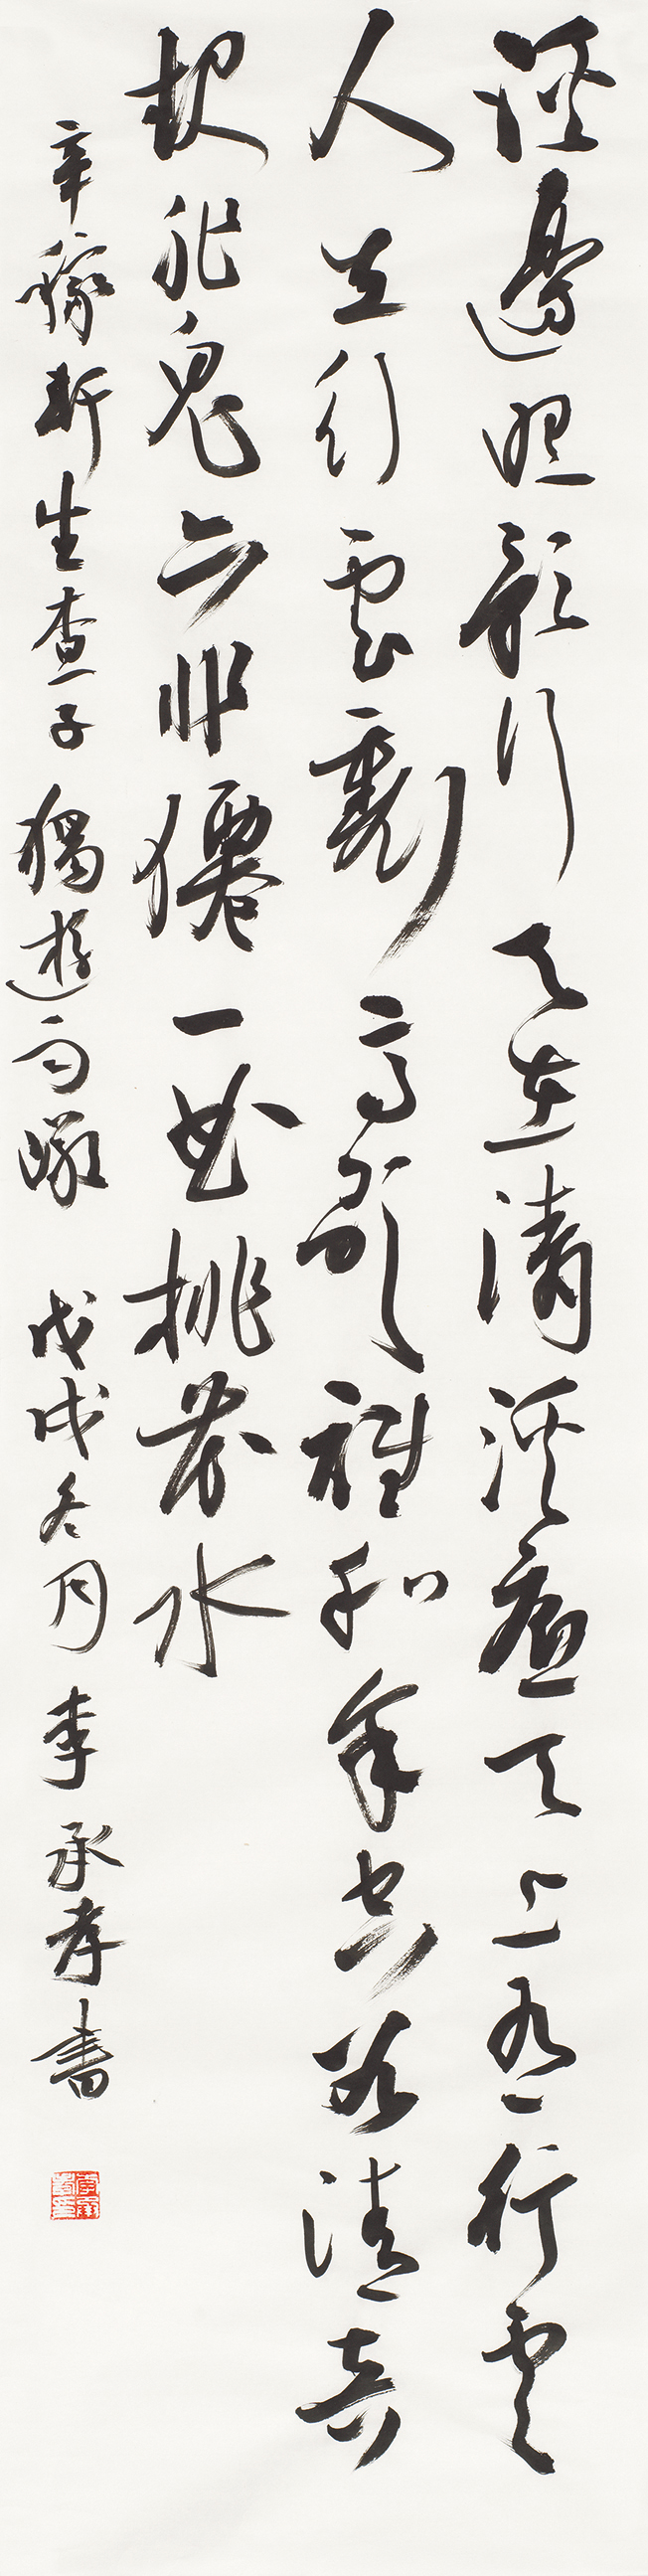 溪邊照影行天在清溪底天上有行雲
人在行雲裏高歌誰和余空谷清音
起非鬼亦非僊一曲桃花水
辛稼軒生查子獨遊雨巖 戊戌冬月 李承孝書
李承孝印